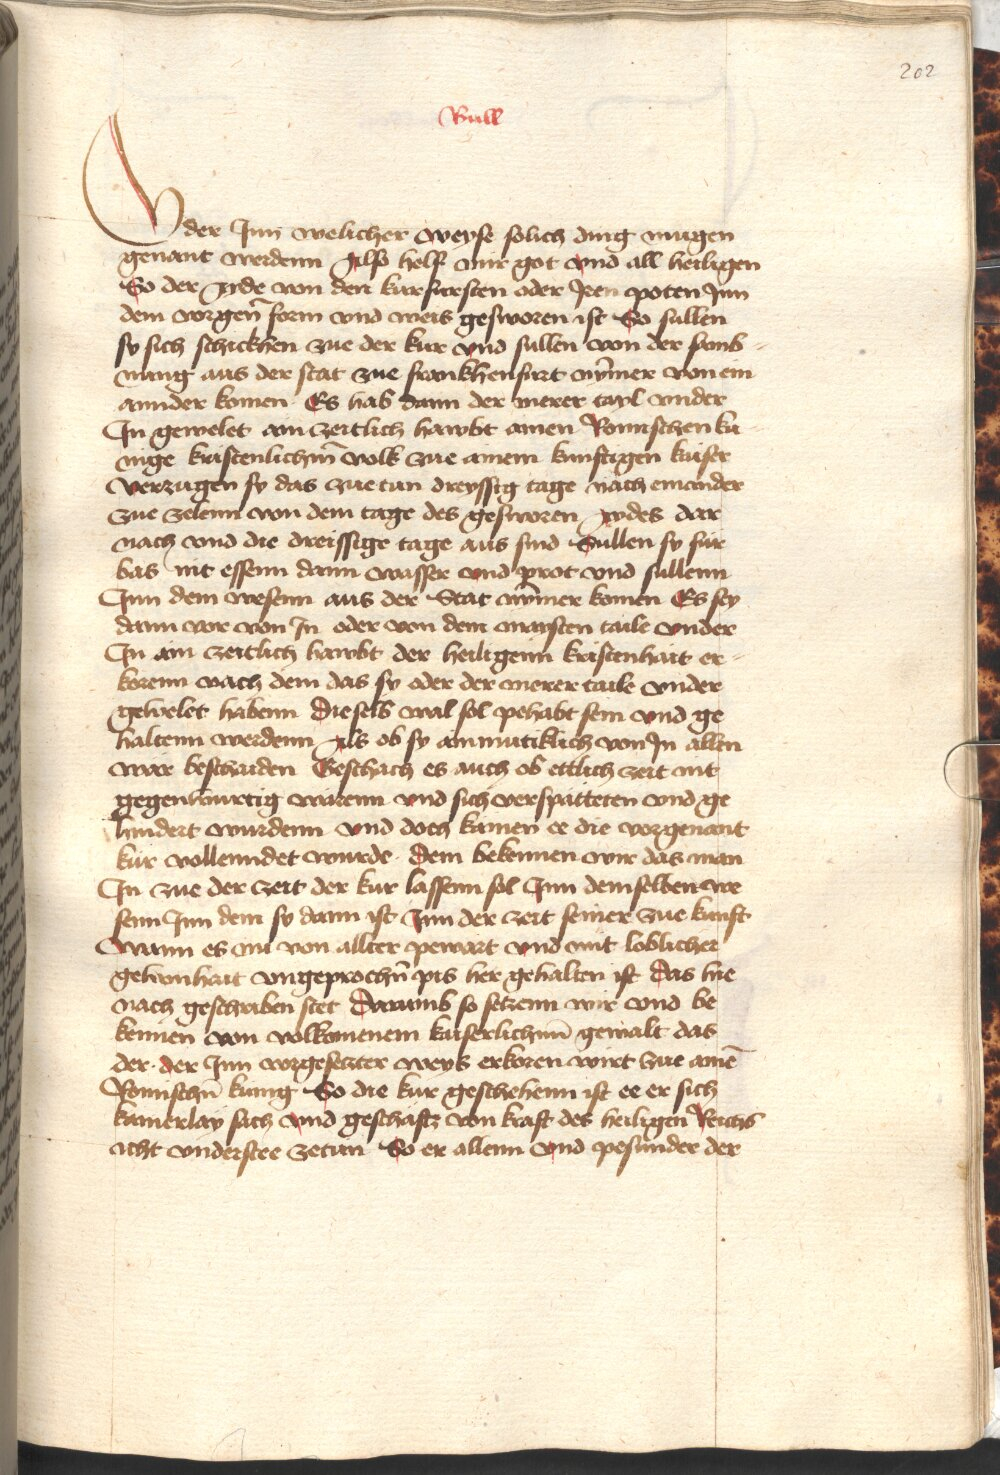 202
Bull
Oder Jnn welicher weyse solich ding mugen
genant werdenn Also helf mir got vnd all heiligen
So der Ayde von den kurfursten oder Jren poten Jnn
dem vorgen̄ form vnd weis gesworen ist So sullen
sy sich schickhen zue der kur vnd sullen von der
mang aus der stat zue frankhenfurt nÿmer von ein
annder komen Es hab dann der merer tayl vnder
Jn gewelet ain zeitlich hawbt ainen Romischen ku
nige kristenlichm̄ volk zue ainem kunftigen kaiser
verzugen sy das zue tun dreyssig tage nach einander
zue zelenn von dem tage des gesworen Aydes dar
nach vnd die dreissige tage aus sind Sullen sy fur
bas nit essenn dann wasser vnd prot vnd sullenn
Jnn dem wesenn aus der Stat nÿmer komen Es sey
dann vor von Jn oder von dem maysten taile vnder
Jn ain zeitlich hawbt der heiligenn kristenhait er-
korenn nach dem das sy oder der merer taile vnder
gewelet habenn Dieselb wal sol pehabt sein vnd ge
haltenn werdenn Als ob sy ainmutiklich von Jn allen
war beschaiden Geschach es auch ob ettlich zeit nit
gegenwurtig warenn vnd sich verspatteten vnd ge
hindert wurdenn vnd doch kamen ee die vorgenant
kur vollenndet wurde. Dem bekennen wir das man
Jn zue der zeit der kur lassenn sol Jnn demselben we
senn Jnn dem sy dann ist Jnn der zeit seiner zue kunft
Wann es nu von allter pewart vnd mit loblicher
gewonhait vngeprochn̄ pis her gehalten ist Das hie
nach geschriben stet Darumb so setzenn wir vnd be
kennen von volkomenem kaiserlichm̄ gewalt das
der. der Jnn vorgesetzter weys erkoren wirt zue ainē
Romischn̄ kunig So die kur geschehenn ist ee er sich
kainerlay sach vnd geschaftz von kraft des heiligen Reichs
icht vnderstee zetun So er allenn vnd pesunder der